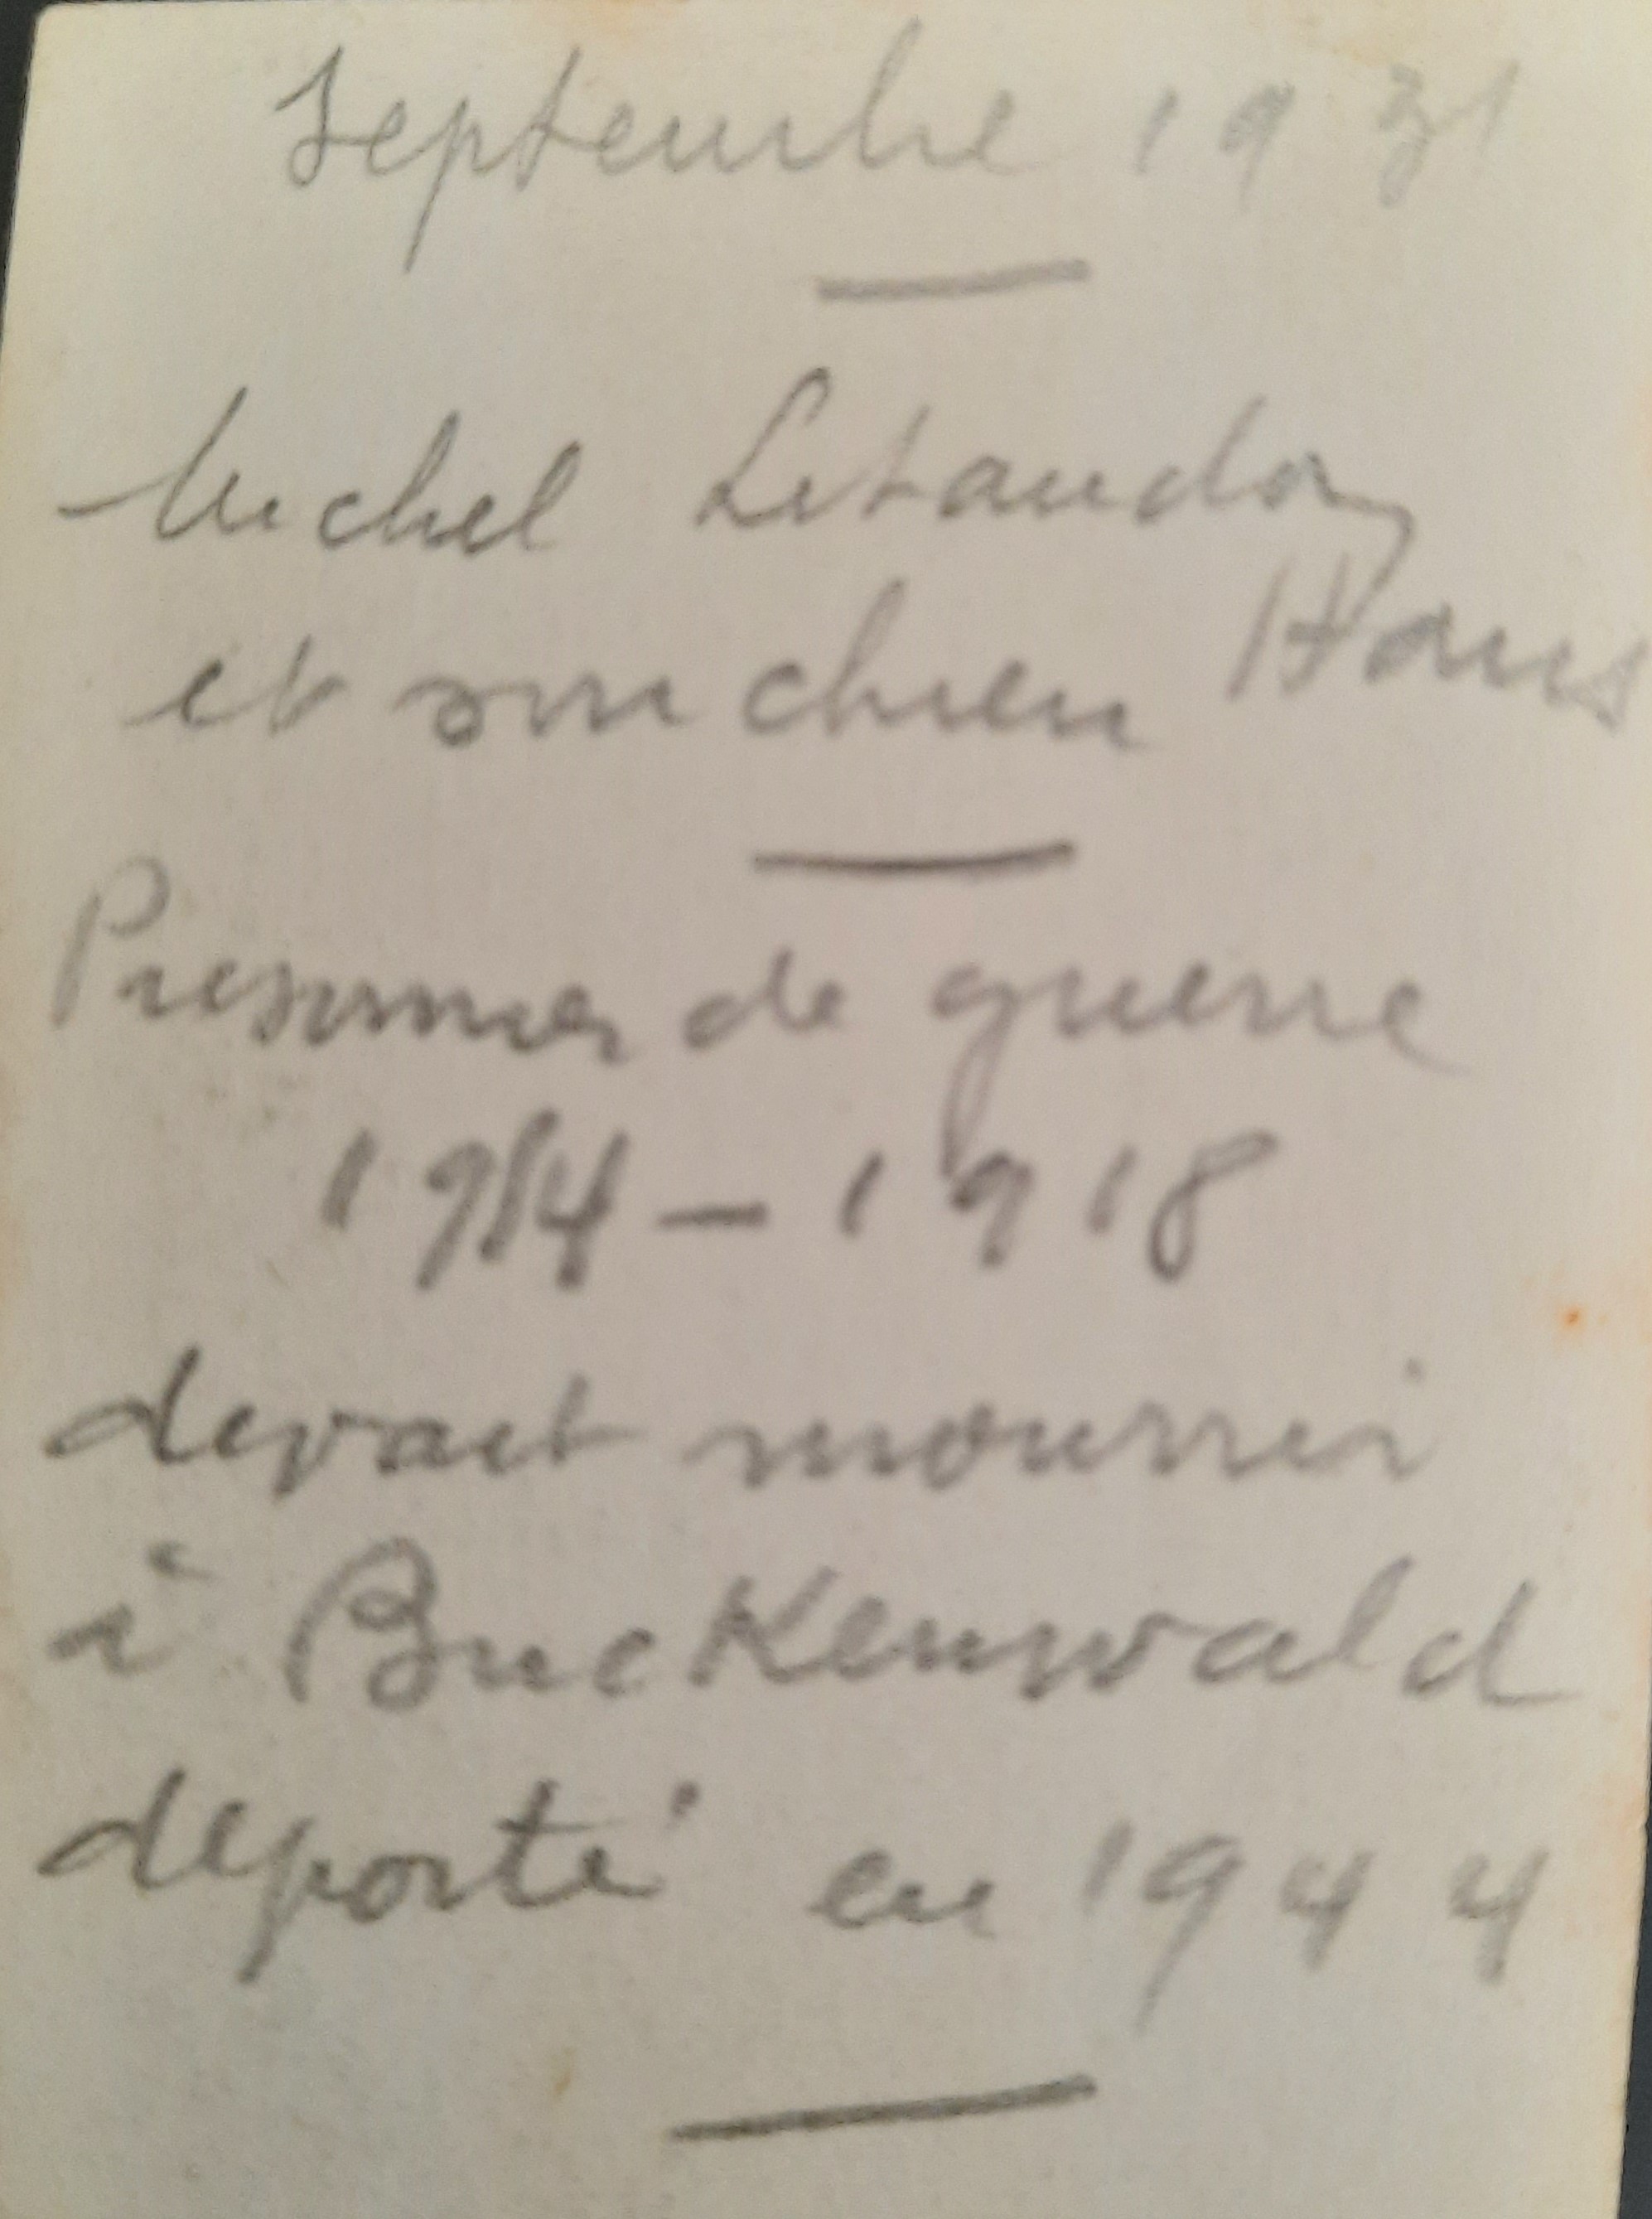 Septembre 1931
Michel Litaudon
et son chien Hans
Prisonnier de guerre
1914 - 1918
devait mourrir
à Buckenwald
déporté en 1944